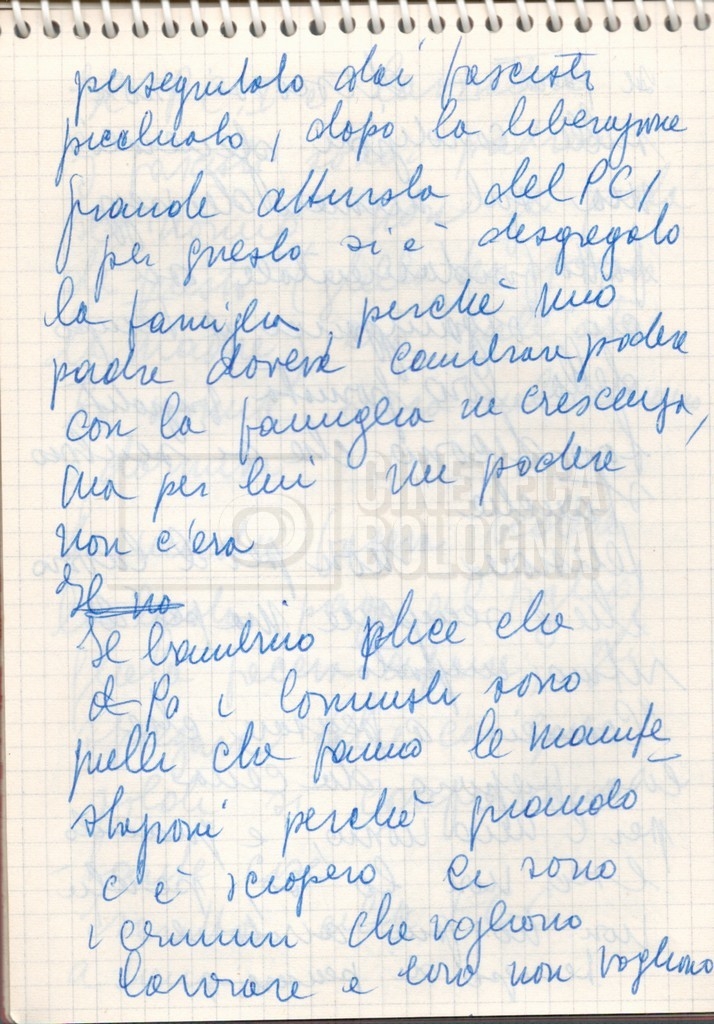 perseguitato dai fascisti
picchiato, dopo la liberazione
grande attivista del PCI
per questo si è disgregata
la famiglia, perché mio
padre doveva cambiare podere
con la famiglia in crescenza,
ma per lui un podere
non c'era
Il no
Il bambino dice che
i comunisti sono
quelli che fanno le manife
stazioni perché quando
c'è sciopero ci sono
i che vogliono
lavorare e loro non vogliono
CINETECA
BOLOGNA